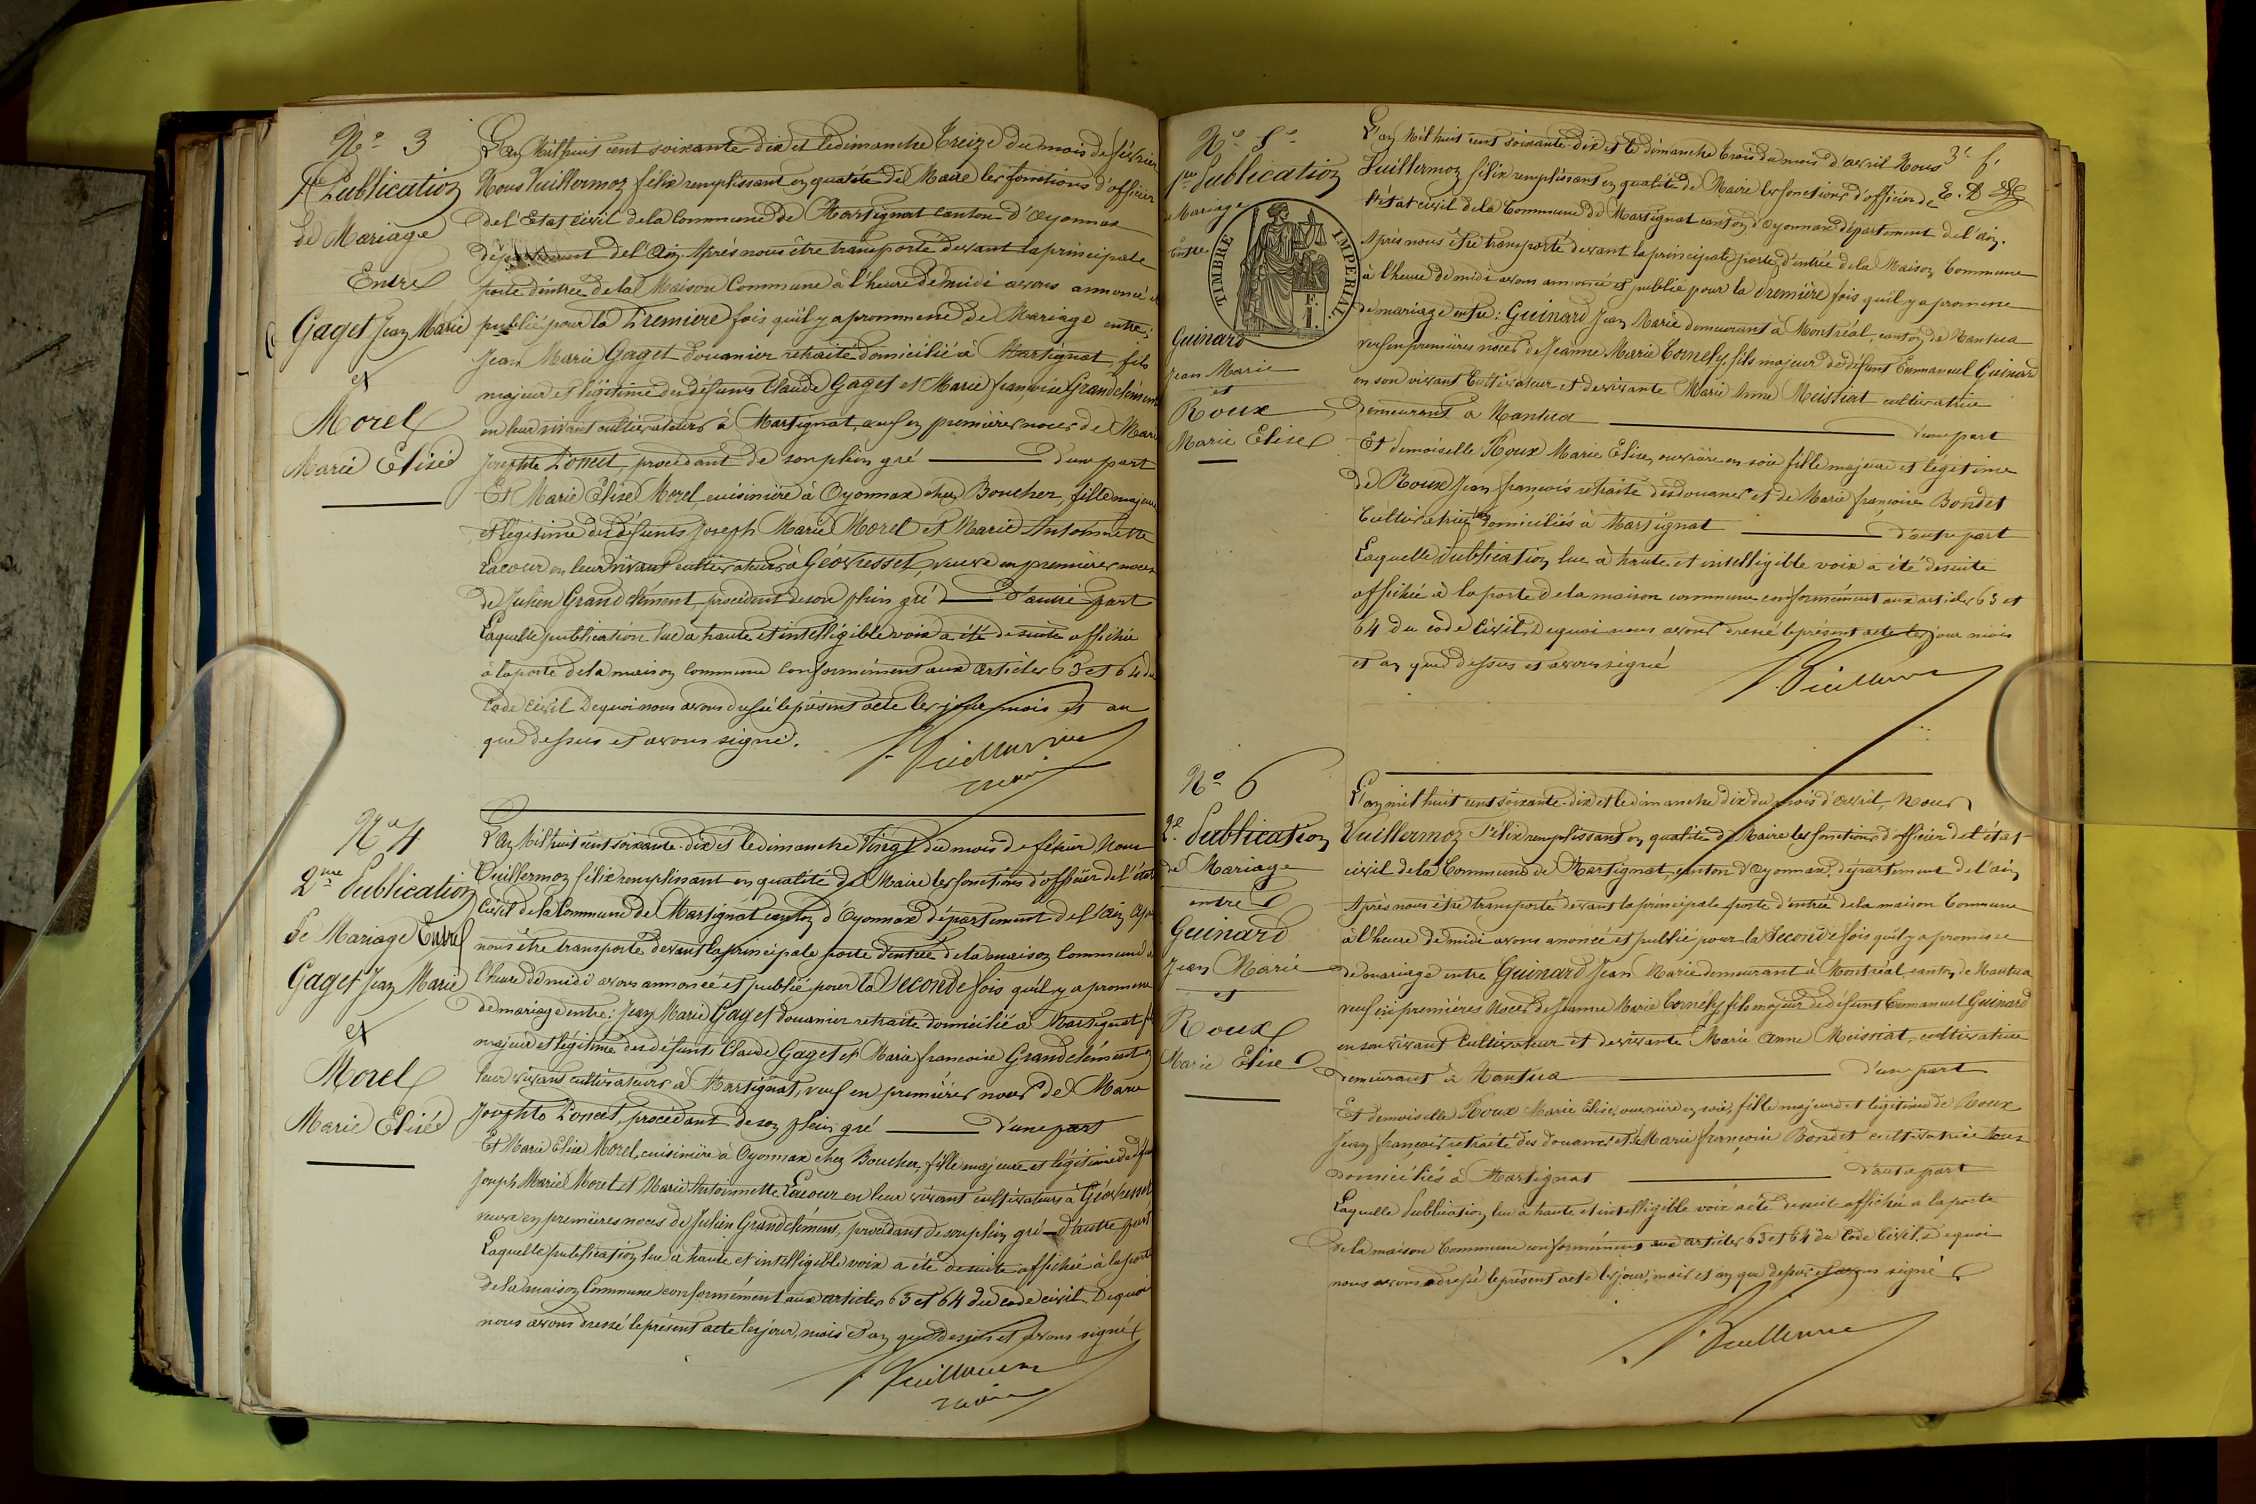 N° 3
1re Publication
de Mariage
Entre
Gaget Jean Marie
et
Morel
Marie Elise
L'an Mil huit cent soixante dix et le dimanche Treize du mois de février
Nous Vuillermoz félix remplissant en qualité de Maire les fonctions d'officier
de l'Etat civil de la Commune de Martignat canton d'Oyonnax
département de l'Ain. Après nous être transporté devant la principale
porte d'entrée de la Maison Commune à l'heure de midi avons annoncé et
publié pour la Première fois qu'il y a promesse de Mariage entre:
Jean Marie Gaget douanier retraité domicilié à Martignat fils
majeur et légitime des défunts Claude Gaget et Marie françoise Grandclément
en leur vivant cultivateurs à Martignat, veuf en premières noces de Marie
Josephte Poncet, procédant de son plein gré d'une part
Et Marie Elise Morel, cuisinière à Oyonnax chez Boucher, fille majeure
et légitime des défunts Joseph Marie Morel et Marie Antoinette
Lacour en leur vivant cultivateurs à Géovresset, veuve en premières noces
de Julien Grandclément, procédant de son plein gré d'autre part
Laquelle publication lue à haute et intelligible voix a été de suite affichée
à la porte de la maison commune conformément aux articles 63 et 64 du
Code Civil De quoi nous avons dressé le présent acte les jour mois et an
que dessus et avons signé.
F. Vuillermoz
maire
N° 4
2me Publication
de Mariage Entre
Gaget Jean Marie
et
Morel
Marie Elise
L'An Mil huit cent soixante-dix et le dimanche Vingt du mois de février Nous
Vuillermoz félix remplissant en qualité de Maire les fonctions d'officier de l'état
Civil de la Commune de Martignat canton d'Oyonnax département de l'ain Après
nous être transporté devant la principale porte d'entrée de la maison Commune à
l'heure de midi avons annoncé et publié pour la Seconde fois qu'il y a promesse
de mariage entre: Jean Marie Gaget douanier retraité domicilié à Martignat fils
majeur et légitime des défunts Claude Gaget et Marie francoise Grandclément en
leur vivant cultivateurs à Martignat, veuf en premières noces de Marie
Josephte Poncet, procédant de son plein gré d'une part
Et Marie Elise Morel, cuisinière à Oyonnax chez Boucher, fille majeure et légitime de défunts
Joseph Marie Morel et Marie Antoinnette Lacour en leur vivant cultivateurs à Géovresset
veuve en premières noces de Julien Grandclément, procédant de son plein gré d'autre part
Laquelle publication lue à haute et intelligible voix a été de suite affichée à la porte
de la maison Commune conformément aux articles 63 et 64 du code civil. De quoi
nous avons dressé le présent acte les jour, mois et an que dessus et avons signé
F. Vuillermoz
maire
N° 5
1re Publication
de Mariage
Entre
TIMBRE IMPERIAL.
F. I.
Guinard
Jean Marie
et
Roux
Marie Elise
3e f.
E. D
L'an Mil huit cent soixante-dix et le dimanche trois du mois d'avril Nous
Vuillermoz félix remplissant en qualité de Maire les fonctions d'officier de
l'état civil de la Commune de Martignat canton d'Oyonnax département de l'ain.
Après nous être transporté devant la principale porte d'entrée de la Maison Commune
à l'heure de midi avons annoncé et publié pour la Première fois qu'il y a promesse
de mariage entre: Guinard Jean Marie demeurant à Montréal, canton de Nantua
veuf en premières noces de Jeanne Marie Cornely, fils majeur de défunt Emmanuel Guinard
en son vivant Cultivateur et de vivante Marie Anne Meissiat cultivatrice
demeurant à Nantua d'une part
Et demoiselle Roux Marie Elise, ouvrière en soie fille majeure et légitime
de Roux Jean françois retraité des douanes et de Marie françoise Bondet
Cultivatrice domiciliés à Martignat d'autre part
Laquelle Publication lue à haute et intelligible voix a été de suite
affichée à la porte de la maison commune conformément aux articles 63 et
64 du code Civil. De quoi nous avons dressé le présent acte les jour mois
et an que dessus et avons signé
F. Vuillermoz
N° 6
2e Publication
de Mariage
entre
Guinard
Jean Marie
et
Roux
Marie Elise
L'an mil huit cent soixante-dix et le dimanche dix du mois d'avril, Nous
Vuillermoz Félix remplissant en qualité de Maire les fonctions d'officier de l'état-
civil de la Commune de Martignat, canton d'Oyonnax, département de l'ain
Après nous être transporté devant la principale porte d'entrée de la maison Commune
à l'heure de midi avons anoncé et publié pour la Seconde fois qu'il y a promesse
de mariage entre Guinard Jean Marie demeurant à Montréal canton de Nantua
veuf en premières Noces de Jeanne Marie Cornély, fils majeur de défunt Emmanuel Guinard
en son vivant Cultivateur et de vivante Marie Anne Meissiat, cultivatrice
demeurant à Nantua d'une part
Et demoiselle Roux Marie Elise, ouvrière en soie, fille majeure et légitime de Roux
Jean françois retraité des douanes et de Marie françoise Bondet cultivatrice tous
domiciliés à Martignat d'autre part
Laquelle Publication lue à haute et intelligible voix a été de suite affichée à la porte
de la maison Commune conformément aux articles 63 et 64 du Code Civil. De quoi
nous avons dressé le présent acte les jour, mois et an que dessus et avons signé
F. Vuillermoz